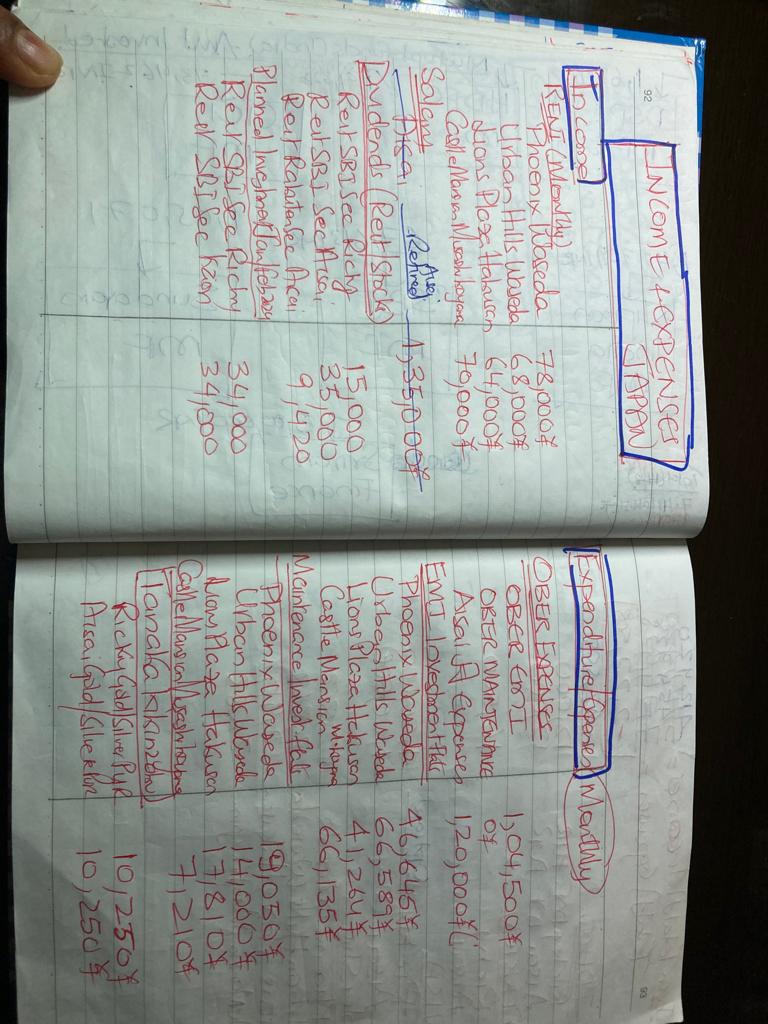 92
INCOME + EXPENSES
JAPAN
Income
RENT (Monthly)
Phoenix Waseda 78,000¥
Urban Hills Waseda 68,000¥
Lions Plaza Hakusan 64,000¥
Castle Mansion Musashi Koyama 70,000¥
Salary
Aisai Retired Aisai 1,35,000¥
Dividends (Reit/Stocks)
Reit SBI Sec Ricky 15,000
Reit SBI Sec Aisai 35,000
Reit Rakuten Sec Aisai 9,420
Planned Investment Jan/Feb 2024
Reit SBI Sec Richy 34,000
Reit SBI Sec Kaori 34,000
93
Expenditure/Expenses Monthly
OBER EXPENSES
OBER EMI 1,04,500¥
OBER MAINTENANCE 0¥
Aisai A Expenses 1,20,000¥(
EMI Investment flats
Phoenix Waseda 46,645¥
Urban Hills Waseda 66,589¥
Lions Plaza Hakusan 41,264¥
Castle Mansion M-Koyama 66,135¥
Maintenance Invest. flats
Phoenix Waseda 19,050¥
Urban Hills Waseda 14,000¥
Lions Plaza Hakusan 17,810¥
Castle Mansion Musashi Koyama 7,210¥
Tanaka Kikinzoku
Ricky Gold/Silver Pur 10,250¥
Aisai Gold/Silver Pur 10,250¥